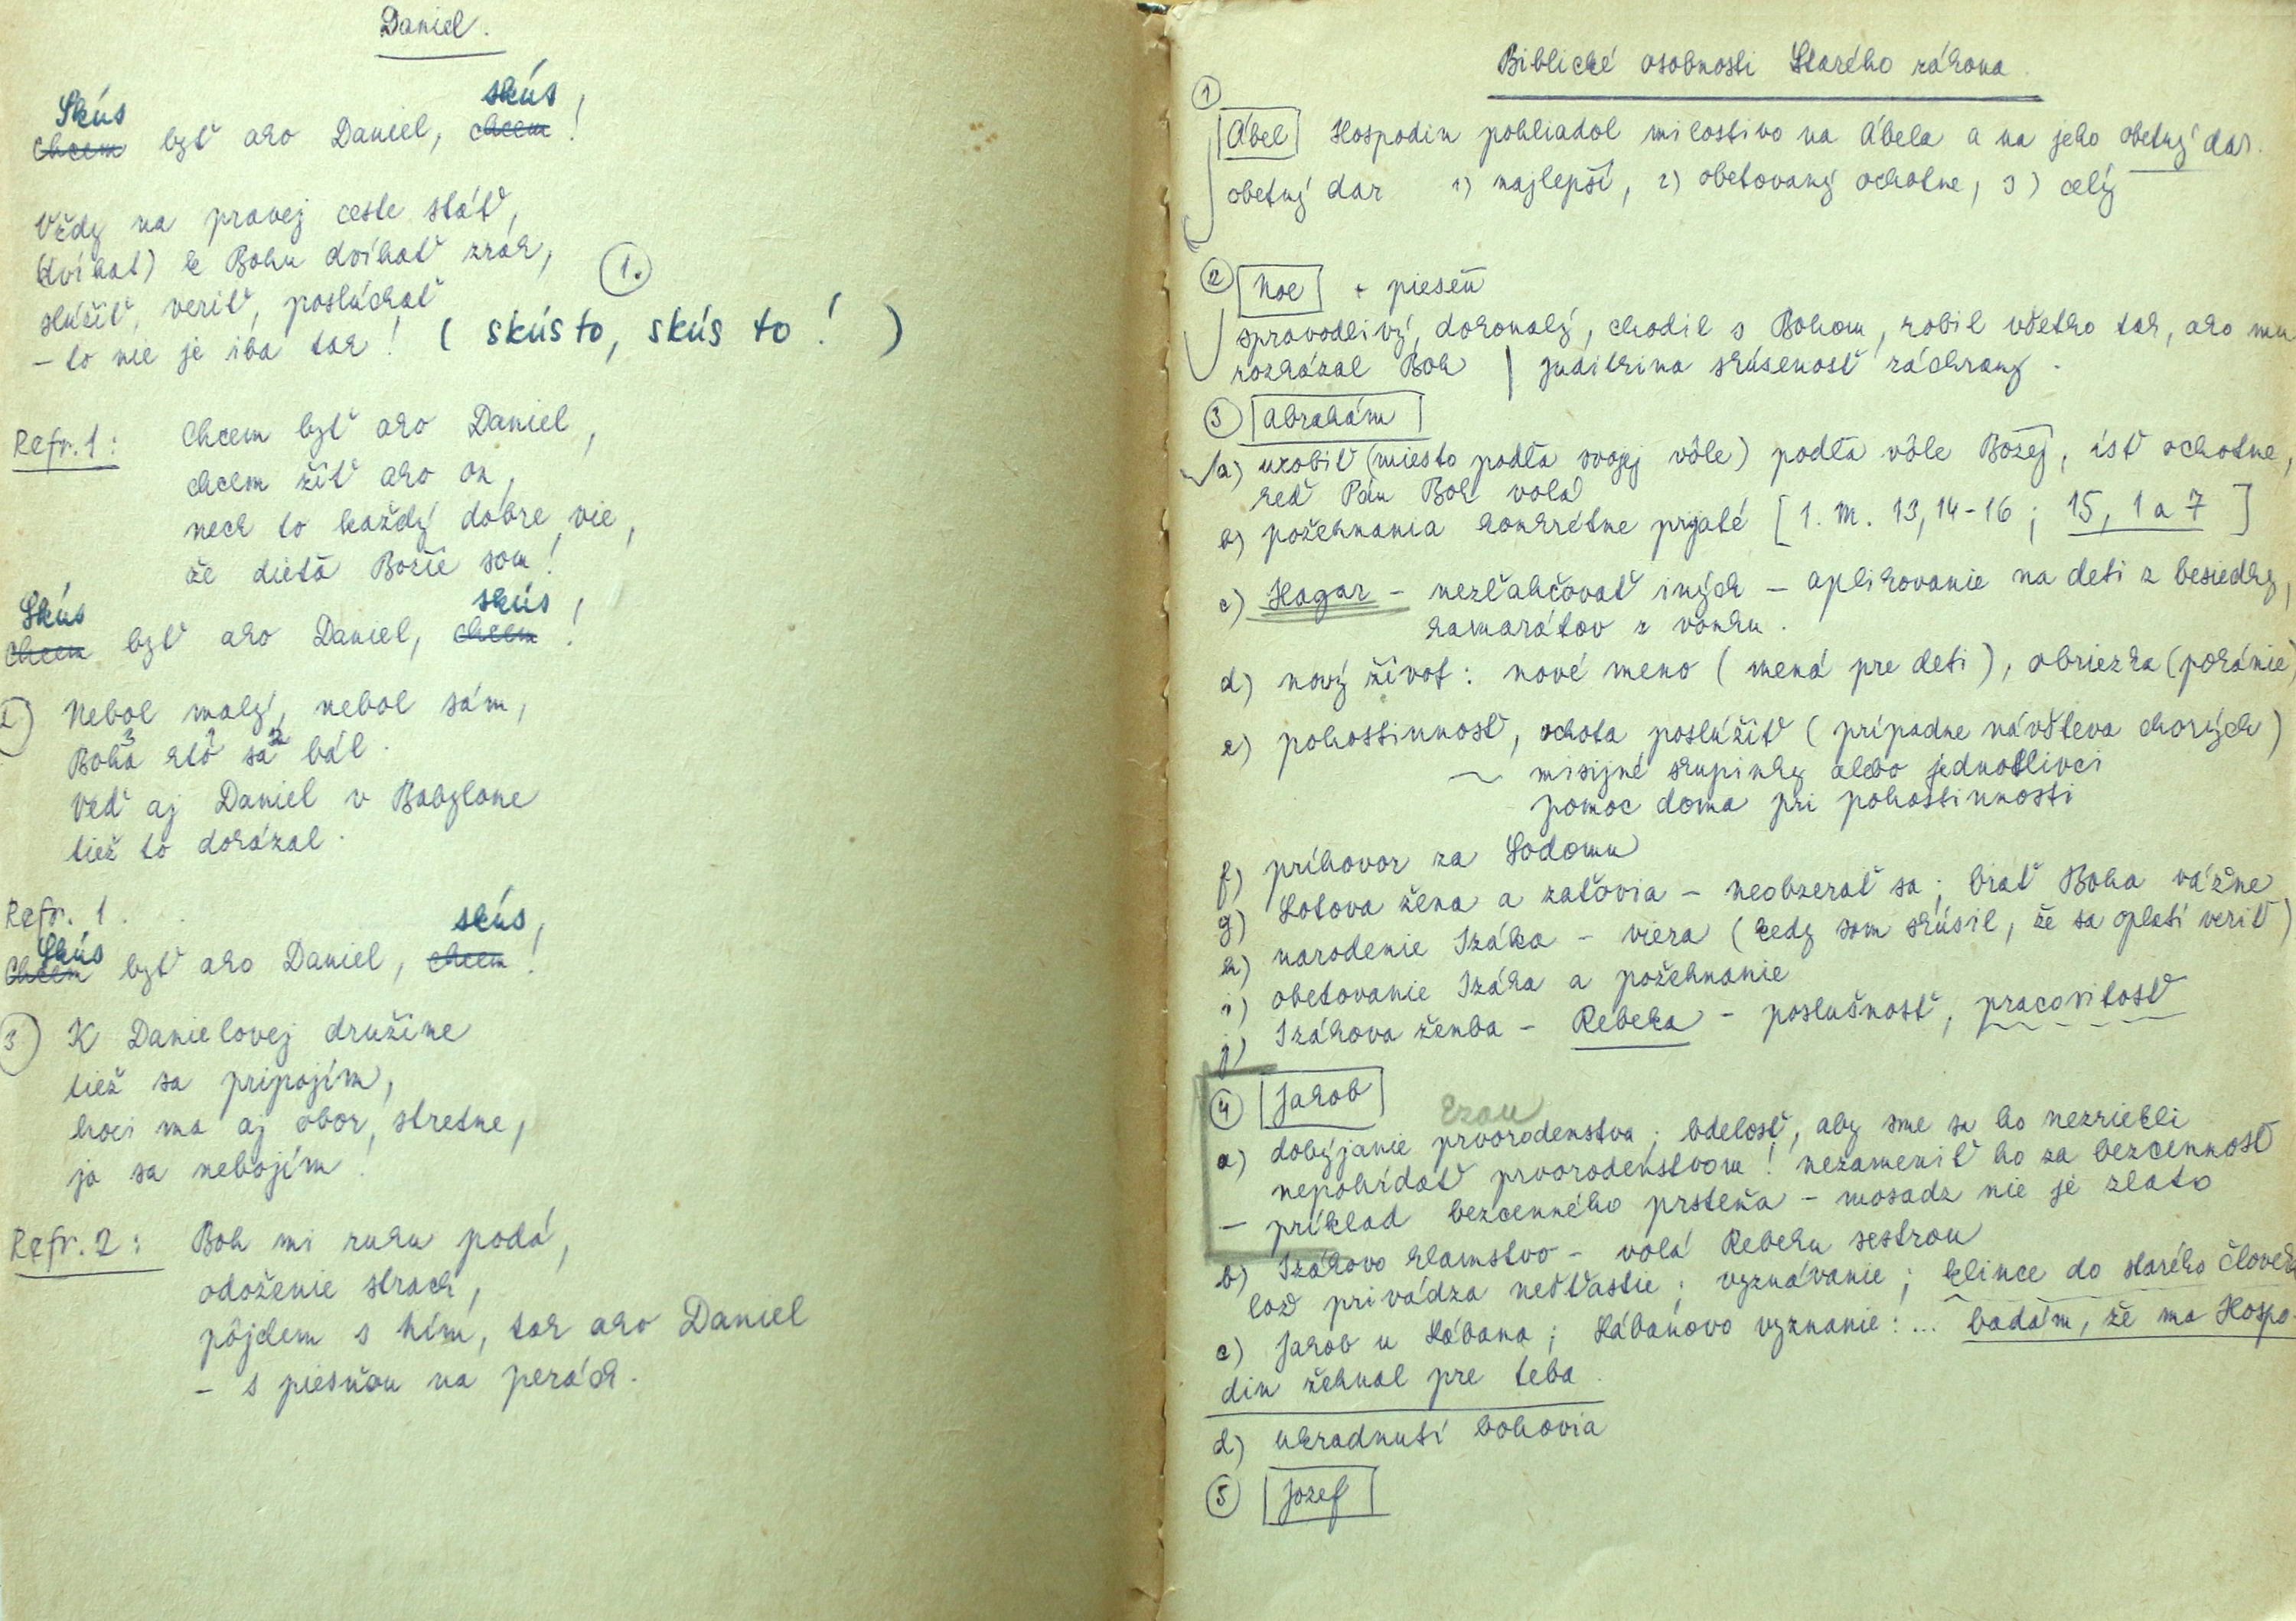 Daniel.
Skús skús,
Chcem byť ako Daniel, chcem!
Vždy na pravej ceste stáť,
(dvíhať) k Bohu dvíhať zrak,
slúžiť, veriť, poslúchať 1.
– to nie je iba tak! (skús to, skús to!)
Refr. 1: Chcem byť ako Daniel,
chcem žiť ako on,
nech to každý dobre vie,
že dieťa Božie som!
Skús skús,
Chcem byť ako Daniel, chcem!
2) Nebol malý, nebol sám,
3 1 2
Boha kto sa bál.
Veď aj Daniel v Babylone
tiež to dokázal.
Refr. 1.
Skús skús,
Chcem byť ako Daniel, chcem!
3) K Danielovej družine
tiež sa pripojím,
hoci ma aj obor stretne,
ja sa nebojím!
Refr. 2: Boh mi ruku podá,
odoženie strach,
pôjdem s Ním, tak ako Daniel
– s piesňou na perách.
Biblické osobnosti Starého zákona
1
Ábel Hospodin pohliadol milostivo na Ábela a na jeho obetný dar.
obetný dar 1) najlepší, 2) obetovaný ochotne, 3) celý
2 Noe + pieseň
spravodlivý, dokonalý, chodil s Bohom, robil všetko tak, ako mu
rozkázal Boh | Juditkina skúsenosť záchrany.
3 Abrahám
a) urobiť (miesto podľa svojej vôle) podľa vôle Božej, ísť ochotne,
keď Pán Boh volá
b) požehnania konkrétne prijaté [1. M. 13, 14-16; 15, 1 a 7]
c) Hagar – nezľahčovať iných – aplikovanie na deti z besiedky,
kamarátov z vonku.
d) nový život: nové meno (mená pre deti), obriezka (pokánie)
e) pohostinnosť, ochota poslúžiť (prípadne návšteva chorých)
~ misijné skupinky alebo jednotlivci
pomoc doma pri pohostinnosti
f) príhovor za Sodomu
g) Lotova žena a zaťovia – neobzerať sa; brať Boha vážne
h) narodenie Izáka – viera (kedy som skúsil, že sa oplatí veriť)
i) obetovanie Izáka a požehnanie
j) Izákova ženba – Rebeka – poslušnosť, pracovitosť
4 Jakob
Ezau
a) dobýjanie prvorodenstva; bdelosť, aby sme sa ho nezriekli
nepohŕdať prvorodenstvom! nezameniť ho za bezcennosť
– príklad bezcenného prsteňa – mosadz nie je zlato
b) Izákovo klamstvo – volá Rebeku sestrou
lož privádza nešťastie; vyznávanie; klince do starého človeka
c) Jakob u Lábana; Lábanovo vyznanie: ... badám, že ma Hospo-
din žehnal pre teba.
d) ukradnutí bohovia
5 Jozef